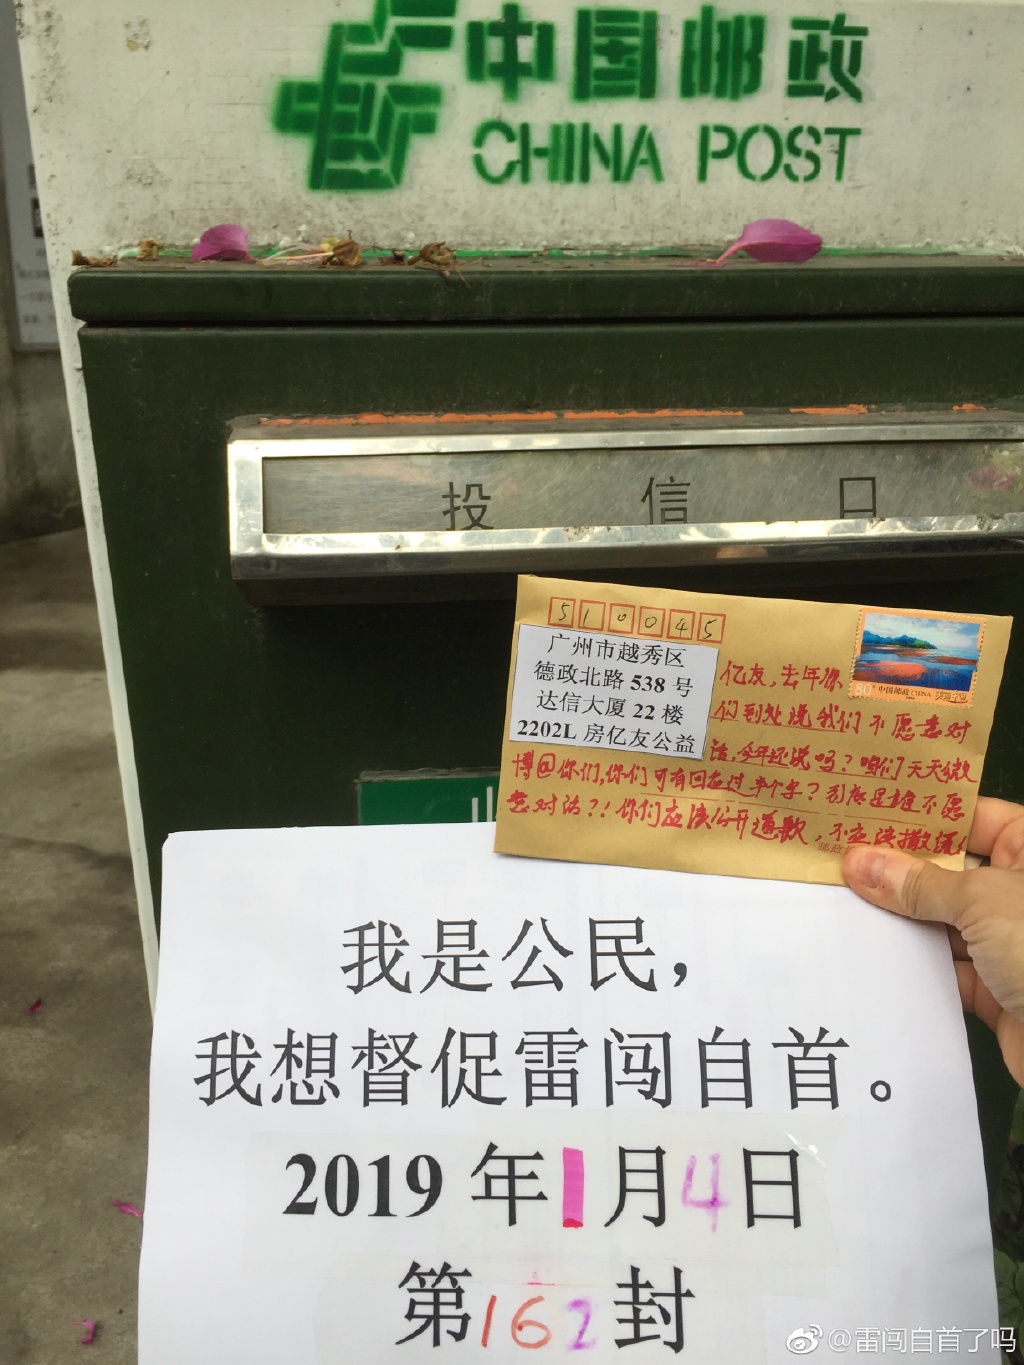 中国邮政
CHINA POST
投信口
510045
广州市越秀区
德政北路 538 号
达信大厦 22 楼
2202L 房亿友公益
80分 中国邮政 CHINA
亿友,去年你
们到处说我们不愿意对
话,今年还说吗?咱们天天微
博@你们,你们可有回应过半个字?到底是谁不愿
意对话?!你们应该公开道歉,不应该撒谎!
我是公民,
我想督促雷闯自首。
2019 年 1 月 4 日
第 162 封
@雷闯自首了吗